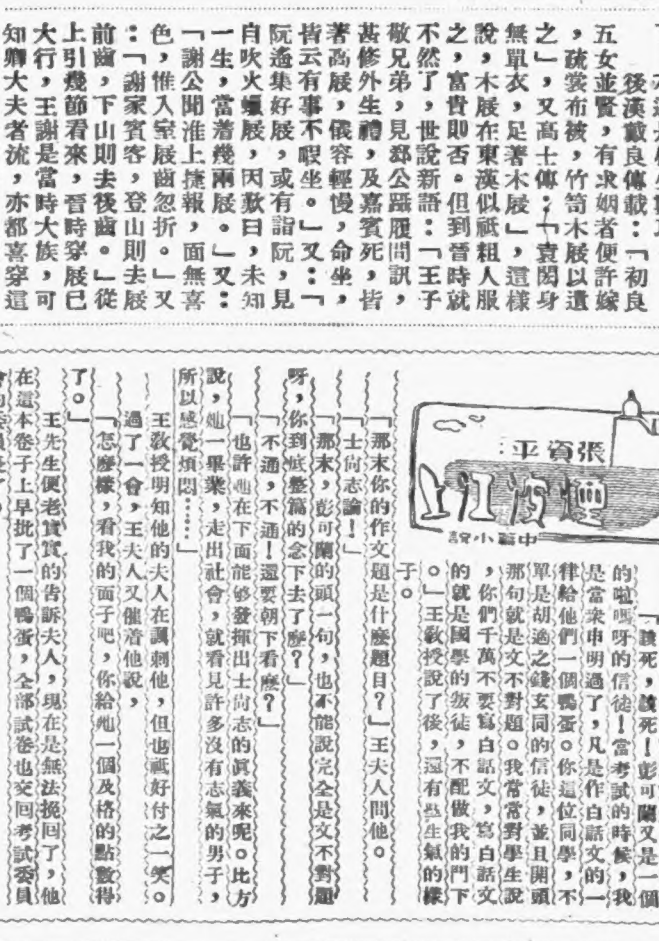 後漢戴良傳載：「初良
五女並賢，有求姻者便許嫁
，疏裳布被，竹笥木屐以遺
之」，又高士傳：「袁閎身
無單衣，足著木屐」，這樣
說，木屐在東漢似祇粗人服
之，富貴即否。但到晉時就
不然了，世說新語：「王子
敬兄弟，見郄公躡履問訊，
甚修外生禮，及嘉賓死，皆
著高屐，儀容輕慢，命坐，
皆云有事不暇坐。」又：「
阮遙集好屐，或有詣阮，見
自吹火蠟屐，因歎曰，未知
一生，當着幾兩屐。」又：
「謝公聞淮上捷報，面無喜
色，惟入室屐齒忽折。」又
：「謝家賓客，登山則去屐
前齒，下山則去後齒。」從
上引幾節看來，晉時穿屐已
大行，王謝是當時大族，可
知卿大夫者流，亦都喜穿這
張資平
煙波江上
中篇小說
「該死，該死！彭可蘭又是一個
的啦嗎呀的信徒！當考試的時候，我
是當衆申明過了，凡是作白話文的一
律給他們一個鴨蛋。你這位同學，不
單是胡適之錢玄同的信徒，並且開頭
那句就是文不對題。我常常對學生說
，你們千萬不要寫白話文，寫白話文
的就是國學的叛徒，不配做我的門下
。」王敎授說了後，還有點生氣的樣
子。
「那末你的作文題是什麼題目？」王夫人問他。
「士尙志論！」
「那末，彭可蘭的頭一句，也不能說完全是文不對題
呀，你到底整篇的念下去了麼？」
「不通，不通！還要朝下看麼？」
「也許她在下面能够發揮出士尙志的眞義來呢。比方
說，她一畢業，走出社會，就看見許多沒有志氣的男子，
所以感覺煩悶……」
王敎授明知他的夫人在諷刺他，但也祇好付之一笑。
過了一會，王夫人又催着他說，
「怎麼樣，看我的面子吧，你給她一個及格的點數得
了。」
王先生便老實實的告訴夫人，現在是無法挽回了，他
在這本卷子上早批了一個鴨蛋，全部試卷也交回考試委員